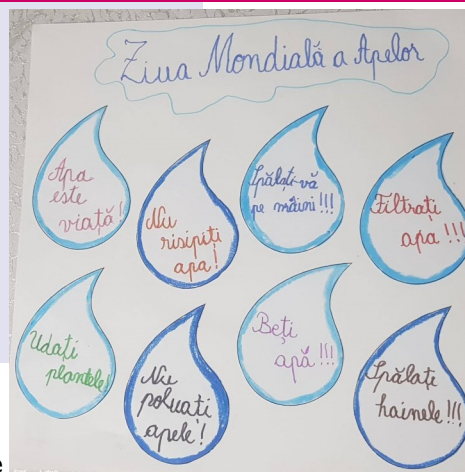 Ziua Mondială a Apelor
Apa
este
viață!
Nu
risipiți
apa!
Spălați-vă
pe mâini!!!
Filtrați
apa!!!
Udați
plantele
Nu
poluați
apele!
Beți
apă!!!
Spălați
hainele!!!
e